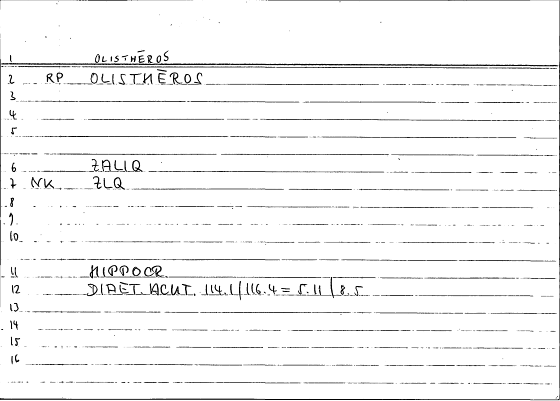 1 OLISTHĒROS
2 RP OLISTHĒROS
3
4
5
6 ZALIQ
7 NK ZLQ
8
9
10
11 HIPPOCR.
12 DIAET. ACUT. 114.1/116.4 = 5.11/8.5
13
14
15
16